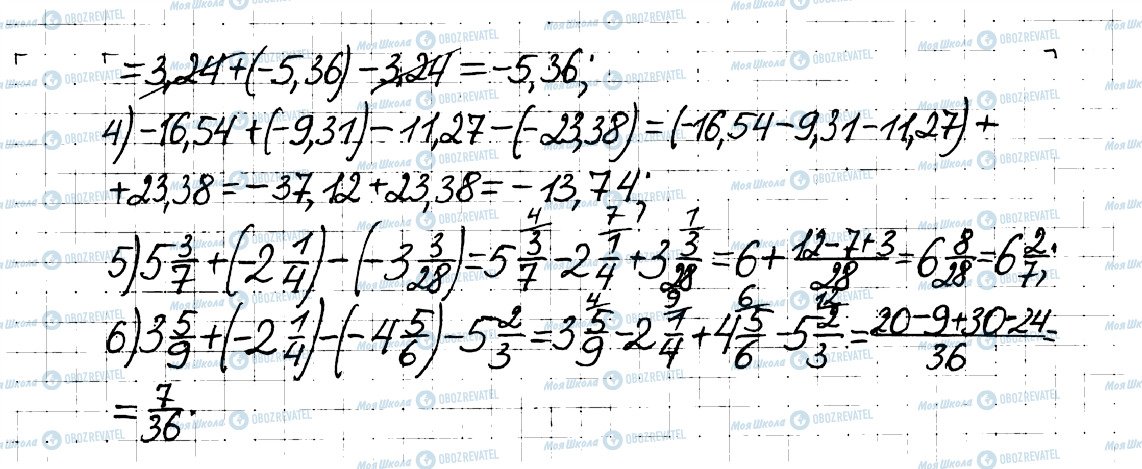 = 3,24 + (-5,36) - 3,24 = -5,36;
4) -16,54 + (-9,31) - 11,27 - (-23,38) = (-16,54 - 9,31 - 11,27) +
+ 23,38 = -37,12 + 23,38 = -13,74.
5) 5 3/7 + (-2 1/4) - (-3 3/28) = 5 3/7 - 2 1/4 + 3 3/28 = 6 + (12-7+3)/28 = 6 8/28 = 6 2/7;
6) 3 5/9 + (-2 1/4) - (-4 5/6) - 5 2/3 = 3 5/9 - 2 1/4 + 4 5/6 - 5 2/3 = (20-9+30-24)/36 =
= 7/36.
Моя Школа OBOZREVATEL